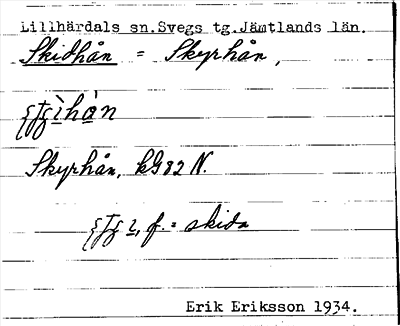 Lillhärdals sn. Svegs tg. Jämtlands län.
Skidhån = Skyrhån,
Skyrhån, kG82 N.
f. = skida
Erik Eriksson 1934.